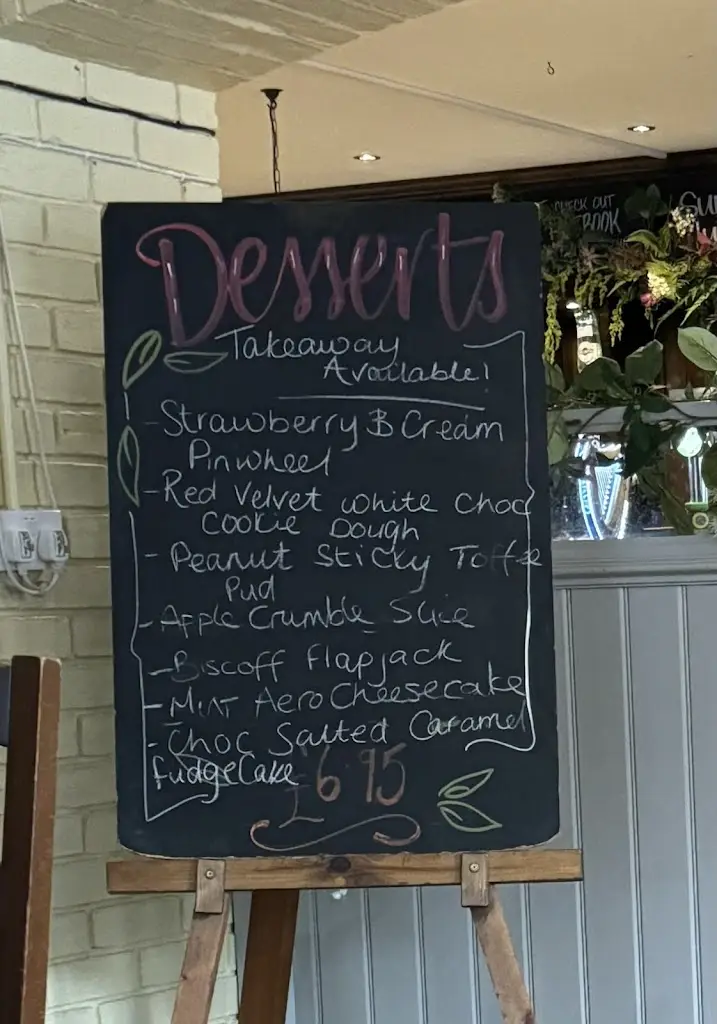 Desserts
Takeaway
Available!
- Strawberry & Cream
Pinwheel
- Red Velvet white Choc
Cookie Dough
- Peanut Sticky Toffee
Pud
- Apple Crumble Slice
- Biscoff Flapjack
- Mint Aero Cheesecake
- Choc Salted Caramel
Fudge Cake
£6.95
CHECK OUT
BOOK